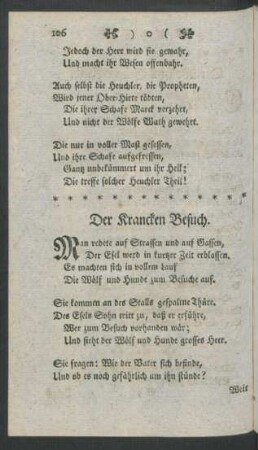 106 ) o (
Jedoch der Herr wird sie gewahr,
Und macht ihr Wesen offenbahr.
Auch selbst die Heuchler, die Propheten,
Wird jener Ober-Hirte tödten,
Die ihrer Schafe Marck verzehrt,
Und nicht der Wölfe Wuth gewehrt.
Die nur in voller Mast gesessen,
Und ihre Schafe aufgefressen,
Gantz unbekümmert um ihr Heil;
Die treffe solcher Heuchler Theil!
Der Krancken Besuch.
Man redete auf Strassen und auf Gassen,
Der Esel werd in kurtzer Zeit erblassen,
Es machten sich in vollem lauf
Die Wölf und Hunde zum Besuche auf.
Sie kommen an des Stalls gespaltne Thüre.
Des Esels Sohn tritt zu, daß er erführe,
Wer zum Besuch vorhanden wär;
Und sieht der Wölf und Hunde grosses Heer.
Sie fragen: Wie der Vater sich befinde,
Und ob es noch gefährlich um ihn stünde?
Weil